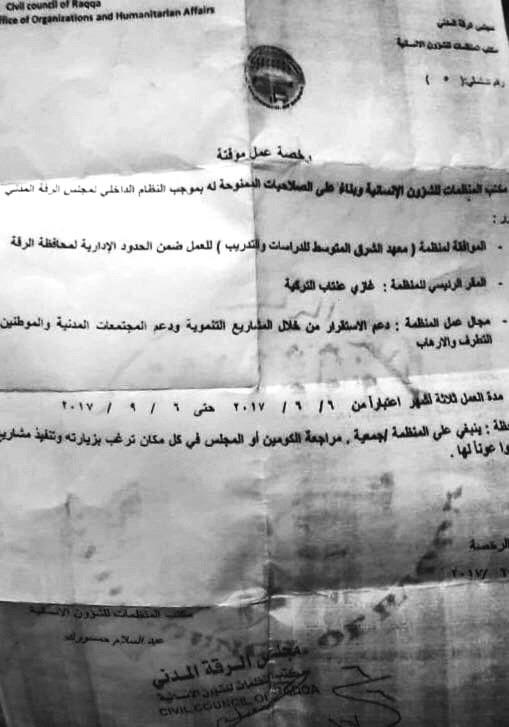 Civil council of Raqqa
ffice of Organizations and Humanitarian Affairs
مجلس الرقة المدني
مكتب المنظمات للشؤون الانسانية
رقم تسلسلي: ( ٥ )
رخصة عمل موقتة
مكتب المنظمات للشؤون الإنسانية وبناءً على الصلاحيات الممنوحة له بموجب النظام الداخلي لمجلس الرقة المدني
ار :
- الموافقة لمنظمة ( معهد الشرق المتوسط للدراسات والتدريب ) للعمل ضمن الحدود الإدارية لمحافظة الرقة
- المقر الرئيسي للمنظمة : غازي عنتاب التركية
- مجال عمل المنظمة : دعم الاستقرار من خلال المشاريع التنموية ودعم المجتمعات المدنية والموطنين
التطرف والارهاب
مدة العمل ثلاثة أشهر اعتباراً من ٦/ ٦ / ٢٠١٧ حتى ٦ / ٩ / ٢٠١٧
حظة : ينبغي على المنظمة /جمعية , مراجعة الكومين أو المجلس في كل مكان ترغب بزيارته وتنفيذ مشاريع
وا عوناً لها .
الرخصة
٢٠١٧/ ٦
مكتب المنظمات للشؤون الانسانية
عبد السلام حمسورك
مجلس الرقة المدني
مكتب المنظمات للشؤون الإنسانية
CIVIL COUNCIL OF RAQQA